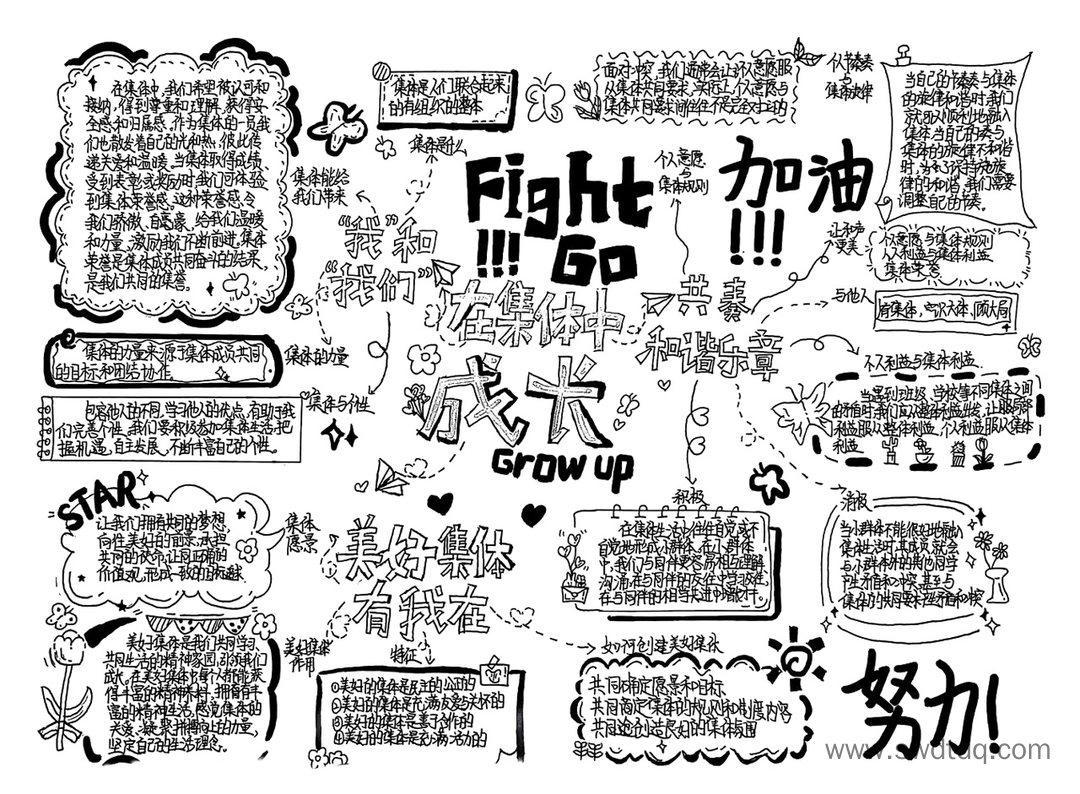 在集体中，我们希望被认可和
接纳，得到尊重和理解，获得安
全感和归属感。作为集体的一员我
们也散发着自己的光和热，彼此传
递关爱和温暖。当集体取得成绩
受到表彰或奖励时我们可体验
到集体荣誉感。这种荣誉感，令
我们骄傲、自豪，给我们温暖
和力量，激励我们不断前进。集体
荣誉是集体成员共同奋斗的结果，
是我们共同的集誉。
集体的力量来源于集体成员共同
的目标和团结协作。
包容他人的不同，学习他人的优点，有助于我
们完善个性。我们要积极参加集体生活，把
握机遇，自主发展，不断丰富自己的个性。
集体是人们联合起来
的有组织的整体
集体是什么
集体能给
我们带来
“我”和
“我们”
集体的力量
集体与个性
Fight
!!! Go
加油
!!!
在集体中
成长
Grow up
面对冲突，我们通常会让个人意愿服
从集体共同要求，实际上，个人意愿与
集体共同要求间往往不是完全对立的
个人意愿
与
集体规则
个人节奏
与
集体旋律
当自己的节奏与集体
的旋律和谐时，我们
就可以顺利地融入
集体，当自己的节奏与
集体的旋律不和谐
时，为了保持旋
律的和谐，我们需要
调整自己的节奏。
让和声
更美
个人意愿与集体规则
个人利益与集体利益
集体荣誉
共奏
和谐乐章
与他人
有集体，识大体，顾大局
个人利益与集体利益
当遇到班级、学校等不同集体之间
的矛盾时，我们应从整体利益出发，让局部
利益服从整体利益，个人利益服从集体
利益
积极
在集体生活中，往往自觉或不
自觉地形成小群体。在小群体
中，我们与同伴更容易相互理解
沟通，在与同伴的交往中学习改进，
在与同伴的相伴共进中增添才干。
消极
当小群体不能很好地融入
集体生活时，其成员就会
与小群体外的其他同学
产生矛盾和冲突，甚至与
集体的共同要求产生矛盾和冲突
STAR
让我们拥有共同的梦想，
向往美好的前景，承担
共同的使命，认同正确的
价值观，形成一致的目标追求
集体
愿景
美好集体
有我在
美好集体
作用
美好集体是我们共同学习、
共同生活的精神家园，引领我们
成长。在美好集体中，每个人都能获
得丰富的精神养料，拥有丰
富的精神生活，感觉集体的
关爱，凝聚拼搏向上的力量，
坚定自己的生活理念。
特征
①美好的集体是民主的、公正的
②美好的集体是充满友爱关怀的
③美好的集体是善于合作的
④美好的集体是充满活力的
如何创建美好集体
共同确定愿景和目标
共同商定集体的规则和制度内容
共同追创造良好的集体氛围
努力!
www.swdtdq.com